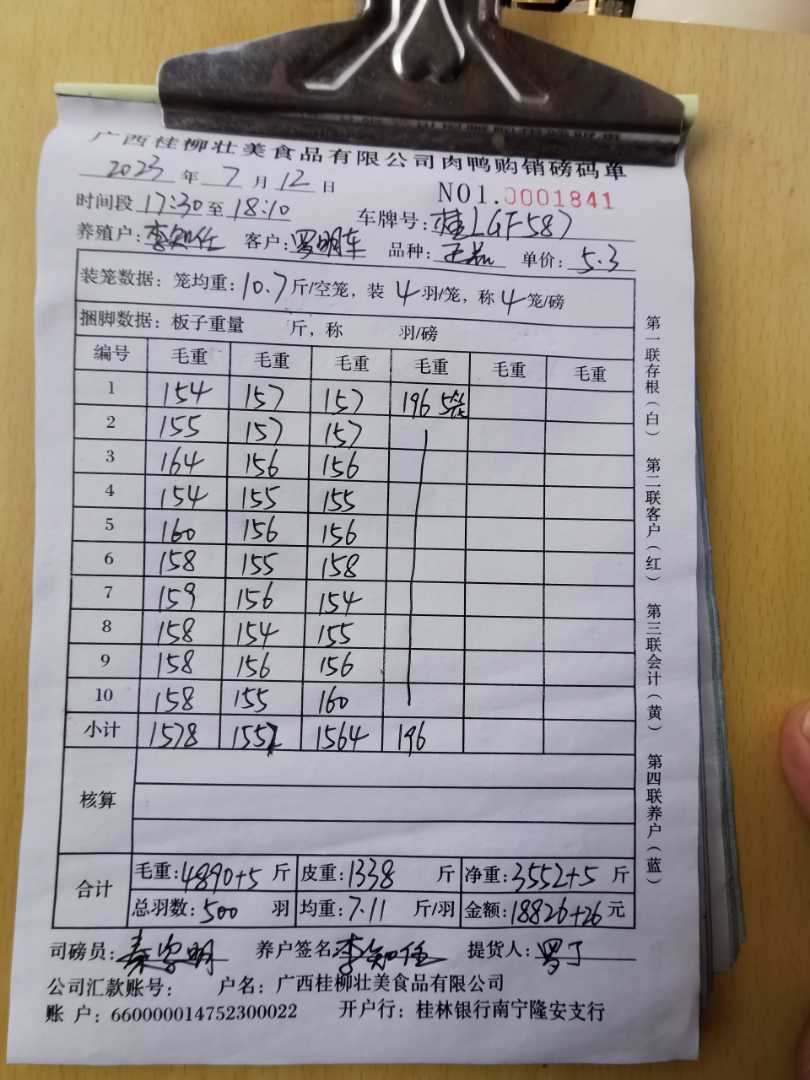 广西桂柳壮美食品有限公司肉鸭购销磅码单
2023 年 7 月 12 日 NO1.0001841
时间段 17:30 至 18:10 车牌号: 桂LGF587
养殖户: 李知任 客户: 罗明车 品种: 单价: 5.3
装笼数据: 笼均重: 10.7 斤/空笼, 装 4 羽/笼, 称 4 笼/磅
捆脚数据: 板子重量 斤, 称 羽/磅
编号 毛重 毛重 毛重 毛重 毛重 毛重
1 154 157 157 196 5笼
2 155 157 157
3 164 156 156
4 154 155 155
5 160 156 156
6 158 155 158
7 159 156 154
8 158 154 155
9 158 156 156
10 158 155 160
小计 1578 1557 1564 196
核算
合计 毛重: 4890+5 斤 皮重: 1338 斤 净重: 3552+5 斤
总羽数: 500 羽 均重: 7.11 斤/羽 金额: 18826+26 元
司磅员: 养户签名 李知任 提货人: 罗丁
公司汇款账号: 户名: 广西桂柳壮美食品有限公司
账 户: 660000014752300022 开户行: 桂林银行南宁隆安支行
第一联存根(白) 第二联客户(红) 第三联会计(黄) 第四联养户(蓝)